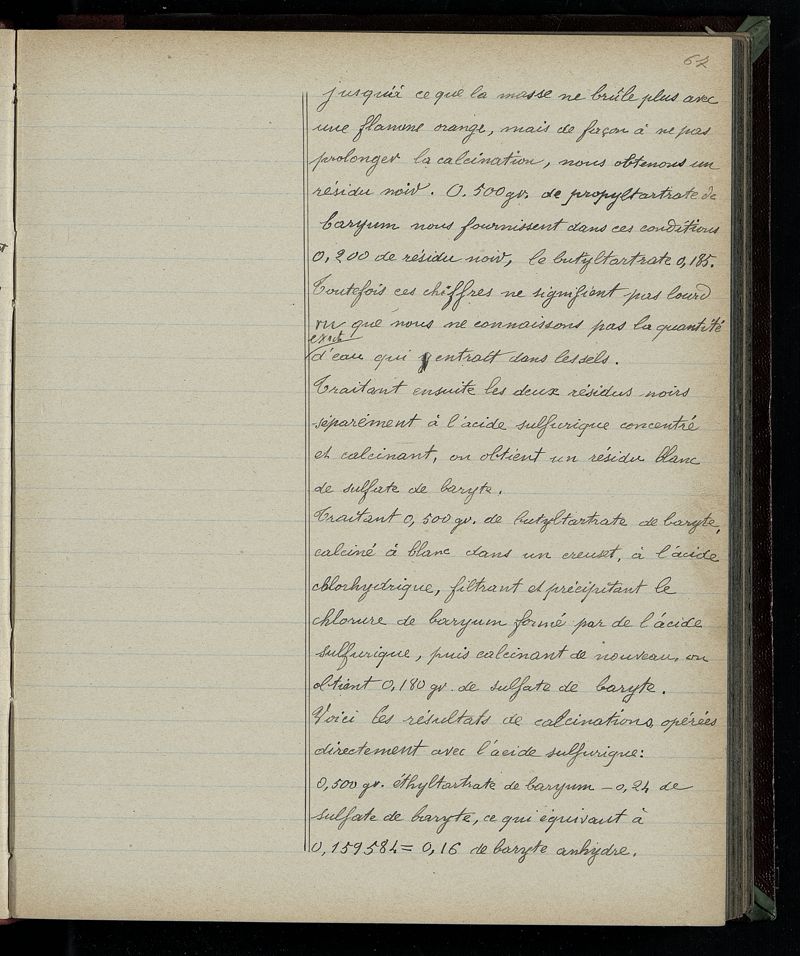 62
jusqu'à ce que la masse ne brûle plus avec
une flamme orange, mais de façon à ne pas
prolonger la calcination, nous obtenons un
résidu noir. 0.500 gr. de propyltartrate de
baryum nous fournissent dans ces conditions
0,200 de résidu noir, le butyltartrate 0,185.
Toutefois ces chiffres ne signifient pas lourd
vu que nous ne connaissons pas la quantité
exacte
d'eau qui entrait dans les sels.
Traitant ensuite les deux résidus noirs
séparément à l'acide sulfurique concentré
et calcinant, on obtient un résidu blanc
de sulfate de baryte.
Traitant 0,500 gr. de butyltartrate de baryte,
calciné à blanc dans un creuset, à l'acide
chlorhydrique, filtrant et précipitant le
chlorure de baryum formé par de l'acide
sulfurique, puis calcinant de nouveau, on
obtient 0,180 gr. de sulfate de baryte.
Voici les résultats de calcinations opérées
directement avec l'acide sulfurique:
0,500 gr. éthyltartrate de baryum – 0,24 de
sulfate de baryte, ce qui équivaut à
0,159584 = 0,16 de baryte anhydre.